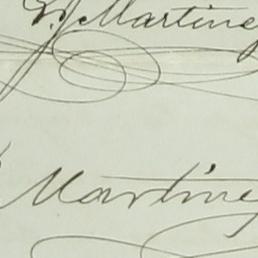 Martinez
Martinez